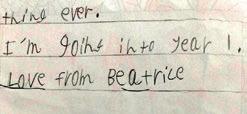 thing ever.
I'm going into year 1.
Love from Beatrice